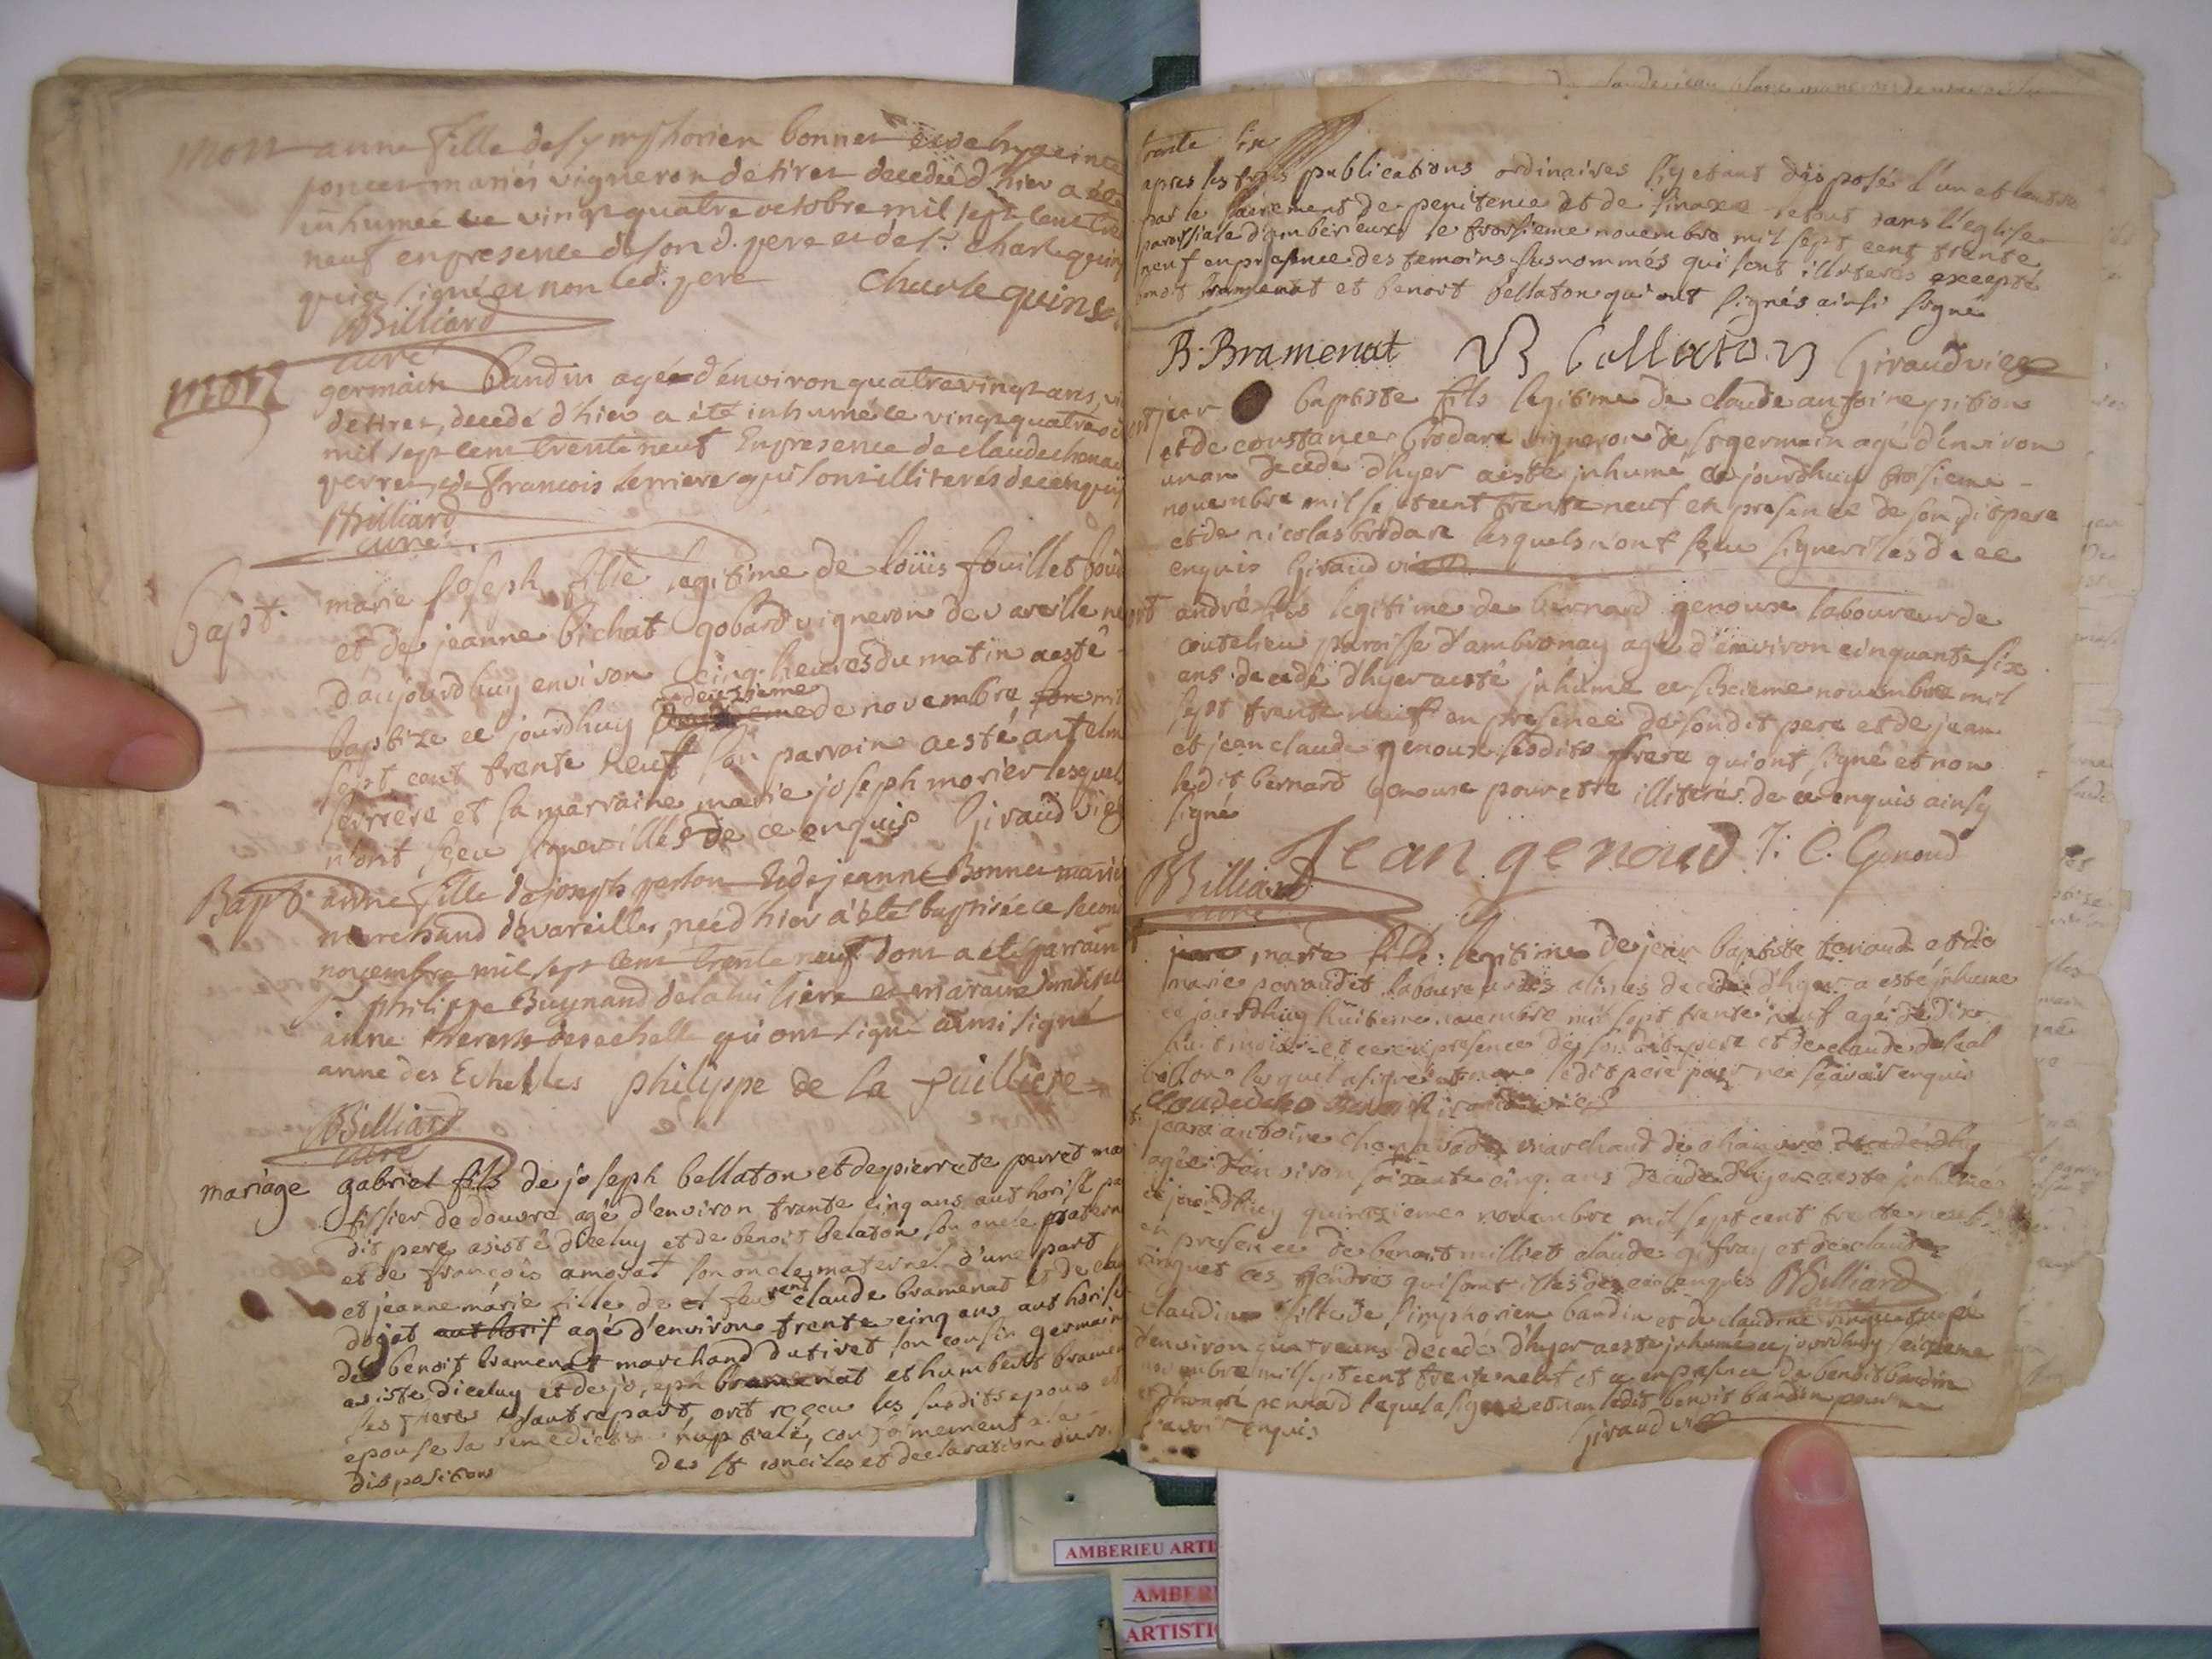 mort anne fille de symphorien bonnet et de hyacinte
poncet mariés vigneron de tiret decedée d'hier a été
inhumee ce vingt quatre octobre mil sept cent tre
neuf en presence de son d. pere et de sr. Charle quin
qui a signé et non led. pere Charle quins
Billiard
curé
mort germain baudin agé d'environ quatre vingt ans,
de tiret, decedé d'hier a été inhumé ce vingt quatre
mil sept cent trente neuf En presence de claude
perret, et de francois serriere qui sont illiterés de ce enquis
Billiard
curé
Bapt. marie joseph fille legitime de loüis fouillet
et de jeanne bichat gobard vigneron de vareille né
d'aujourdhuy environ cinq heures du matin a esté
baptizé ce jourdhuy deuzieme de novembre mil
sept cent trente neuf son parrain a esté antelm
serriere et sa marraine marie joseph morier lesquel
n'ont sceu signer illés de ce enquis Giraud vic
Bapt. anne fille de joseph perton et de jeanne Bonnet mariés
marchand de vareille, née d'hier a été baptisée ce second
novembre mil sept cent trente neuf dont a été parrain
Sr. philippe Buynand de la huiliere et maraine
anne therese des echelle qui ont signé ainsi signé
anne des Echelles philippe de la fuilliere
Billiard
curé
mariage gabriel fils de joseph bellaton et de pierrette perret ma
tissier de douvre agé d'environ trante cinq ans authorisé pa
dit pere asisté d'iceluy et de benoit belaton son oncle patern
et de françois amorat son oncle maternel d'une part
et jeanne marie fille de feu claude bramenat et de
dojat authoris agé d'environ trente cinq ans authorisé
de benoit bramenat marchand du tiret son cousin germain
asisté d'iceluy et de joseph bramenat et humbert bramen
ses freres d'autre part, ont reçeu les susdits epoux et
epouse la benediction nuptiale, conformement a la
disposition des st conciles et declaration du
trente six
apres les trois publications ordinaires s'y etant disposé l'un et l'autre
par le sacrement de penitence et de sinaxe le tout dans l'eglise
paroissiale d'amberieux le troisieme novembre mil sept cent trente
neuf en presence des temoins susnommés qui sont illiterés excepté
benoit bramenat et benoit bellaton qui ont signés ainsi signé
B. Bramenat B bellaton Giraud vic
jean baptiste fils legitime de claude antoine piton
et de constance brodare vigneron de st germain agé d'environ
un an decedé d'hyer a esté inhumé ce jourdhuy troisieme
novembre mil sept cent trente neuf en presence de son dit pere
et de nicolas brodare lesquels n'ont sceu signer illés de ce
enquis Giraud vic
andré fils legitime de bernard genoux laboureur de
coutelieu paroisse d'ambronay agé d'environ cinquante six
ans decedé d'hyer a esté inhumé ce sixieme novembre mil
sept trente neuf en presence de son dit pere et de jean
et jean claude genoux sesdits frere qui ont signé et non
ledit bernard genoux pour estre illiterés de ce enquis ainsy
signé
Jean genoud J: C. Genoud
Billiard
curé
marie fille legitime de jean baptiste et de
marie laboureur decedé d'hyer a esté inhumé
ce jourdhuy huitieme novembre mil sept trente neuf agé de dix
huit mois et ce en presence de son dit pere et de claude
lesquel a signé et non ledit pere pour ne sçavoir enquis
jean antoine marchand de
agée d'environ soixante cinq ans decedé d'hyer a esté inhumé
ce jourdhuy quinzieme novembre mil sept cent trente neuf
en presence de benoit milliet claude gifray et de claude
ringuet ces gendres qui sont illés de ce enquis Billiard
claudine fille de simphorien baudin et de claudine ringuet agé
d'environ quatre ans decedé d'hyer a esté inhumé ce jourdhuy seizieme
novembre mil sept cent trente neuf et a en presence de benoit baudin
et d'honoré pennard lequel a signé et non ledit benoit baudin pour ne
sçavoir enquis Giraud vic
AMBERIEU ARTI
AMBER
ARTISTI